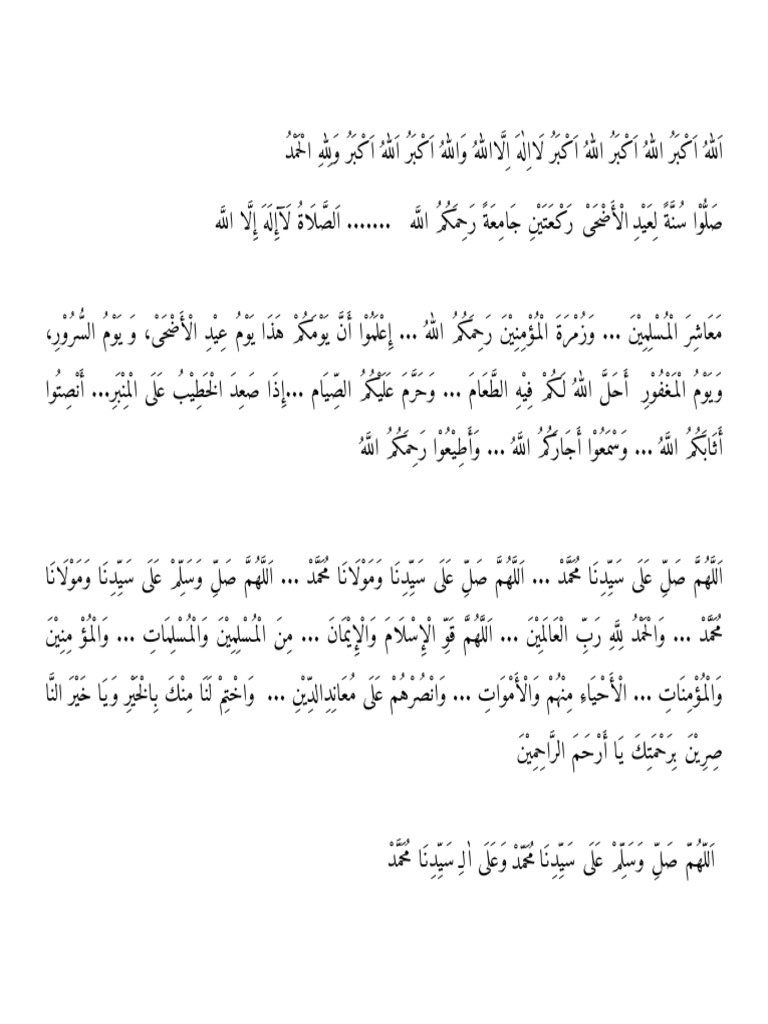 اَللهُ اَكْبَرُ اللهُ اَكْبَرُ اللهُ اَكْبَرُ لَااِلٰهَ اِلَّااللهُ وَاللهُ اَكْبَرُ اَللهُ اَكْبَرُ وَلِلهِ الْحَمْدُ
صَلُّوْا سُنَّةً لِعَيْدِ الْأَضْحَىْ رَكْعَتَيْنِ جَامِعَةً رَحِمَكُمُ اللَّه ....... اَلصَّلَاةُ لَآإِلَهَ إِلَّا اللَّه
مَعَاشِرَ الْمُسْلِمِيْنَ ... وَزُمْرَةَ الْمُؤْمِنِيْنَ رَحِمَكُمُ اللهُ ... إِعْلَمُوْا أَنَّ يَوْمَكُمْ هَذَا يَوْمُ عِيْدِ الْأَضْحَىْ، وَ يَوْمُ السُّرُوْرِ،
وَيَوْمُ الْمَغْفُوْرِ أَحَلَّ اللهُ لَكُمْ فِيْهِ الطَّعَامَ ... وَحَرَّمَ عَلَيْكُمُ الصِّيَام ...إِذَا صَعِدَ الْخَطِيْبُ عَلَى الْمِنْبَرِ... أَنْصِتُوا
أَثَابَكُمُ اللَّهُ ... وَسْمَعُوْا أَجَارَكُمُ اللَّهُ ... وَأَطِيْعُوْا رَحِمَكُمُ اللَّهُ
اَللَّهُمَّ صَلِّ عَلَى سَيِّدِنَا مُحَمَّدْ ... اَللَّهُمَّ صَلِّ عَلَى سَيِّدِنَا وَمَوْلَانَا مُحَمَّدْ ... اَللَّهُمَّ صَلِّ وَسَلِّمْ عَلَى سَيِّدِنَا وَمَوْلَانَا
مُحَمَّدْ ... وَالْحَمْدُ لِلَّهِ رَبِّ الْعَالَمِيْنَ ... اَللَّهُمَّ قَوِّ الْإِسْلَامَ وَالْإِيْمَانَ ... مِنَ الْمُسْلِمِيْنَ وَالْمُسْلِمَاتِ ... وَالْمُؤْ مِنِيْنَ
وَالْمُؤْمِنَاتِ ... الْأَحْيَاءِ مِنْهُمْ وَالْأَمْوَاتِ ... وَانْصُرْهُمْ عَلَى مُعَانِدِالدِّيْنِ ... وَاخْتِمْ لَنَا مِنْكَ بِالْخَيْرِ وَيَا خَيْرَ النَّا
صِرِيْنَ بِرَحْمَتِكَ يَا أَرْحَمَ الرَّاحِمِيْنَ
اَللّهُمّ صَلِّ وَسَلِّمْ عَلَى سَيِّدِنَا مُحَمّدْ وَعَلَى اٰلِ سَيِّدِنَا مُحَمَّدْ